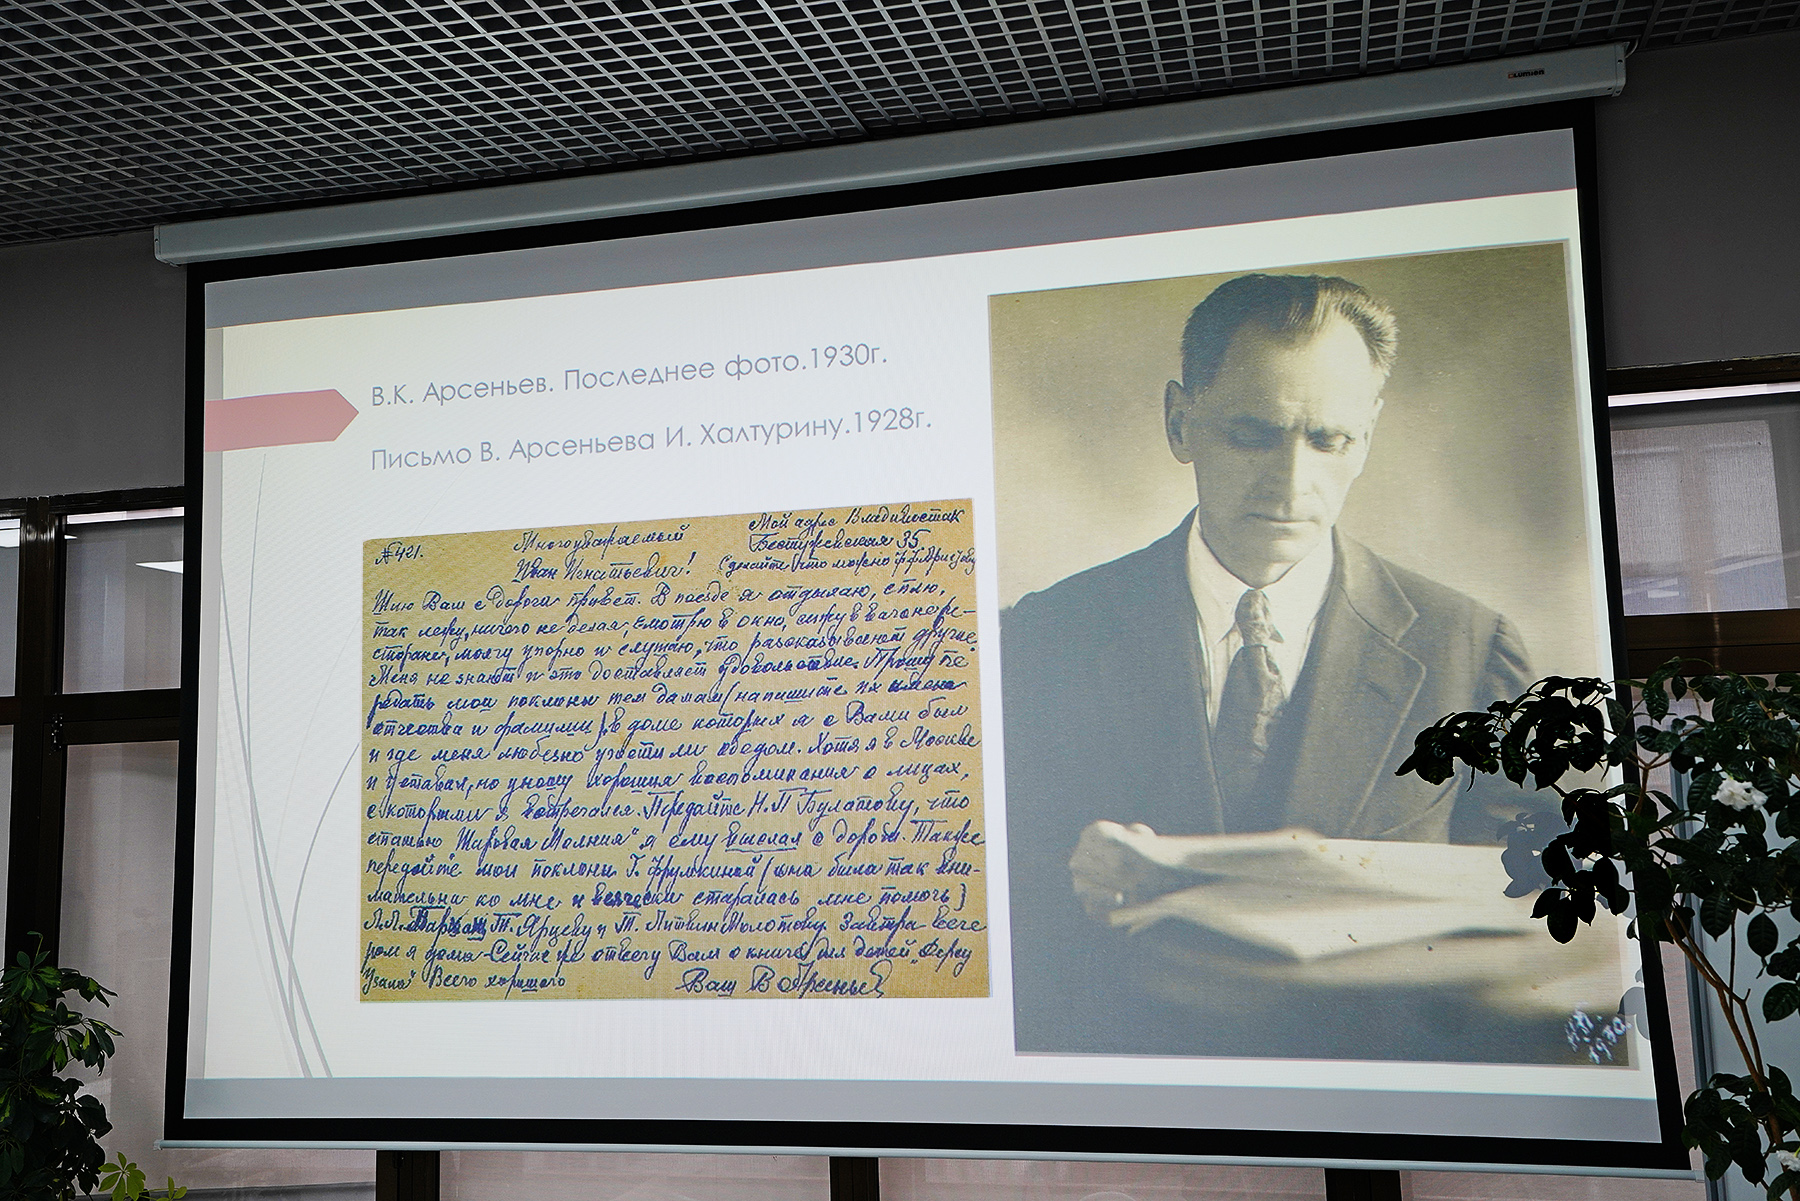 LUMIEN
В.К. Арсеньев. Последнее фото.1930г.
Письмо В. Арсеньева И. Халтурину.1928г.
№421.
Многоуважаемый
Иван Игнатьевич!
Мой адрес Владивосток
Бестужевская 35
Сделайте что можно
Шлю Вам с дороги привет. В поезде я отдыхаю, сплю,
так лежу, ничего не делая, смотрю в окно, сижу в вагоне в
стороне, молчу упорно и слушаю, что рассказывают другие.
Меня не знают и это доставляет удовольствие. Прошу пе-
редать мои поклоны тем дамам (напишите их имена
отчества и фамилии), в доме которых я с Вами был
и где меня любезно угостили обедом. Хотя я в Москве
и уставал, но уношу хорошия воспоминания о лицах,
с которыми я встречался. Передайте Н.П Булатову, что
статью "Шаровая Молния" я ему выслал с дороги. Также
передайте мои поклоны Г. Фрумкиной (она была так вни-
мательна ко мне и всячески старалась мне помочь)
Т. Ярцеву и Т. Литвин Молотову. Завтра вече
ром я дома. Сейчас же отвечу Вам о книге для детей "Дерсу
Узала" Всего хорошаго
Ваш В Арсеньев
1930.